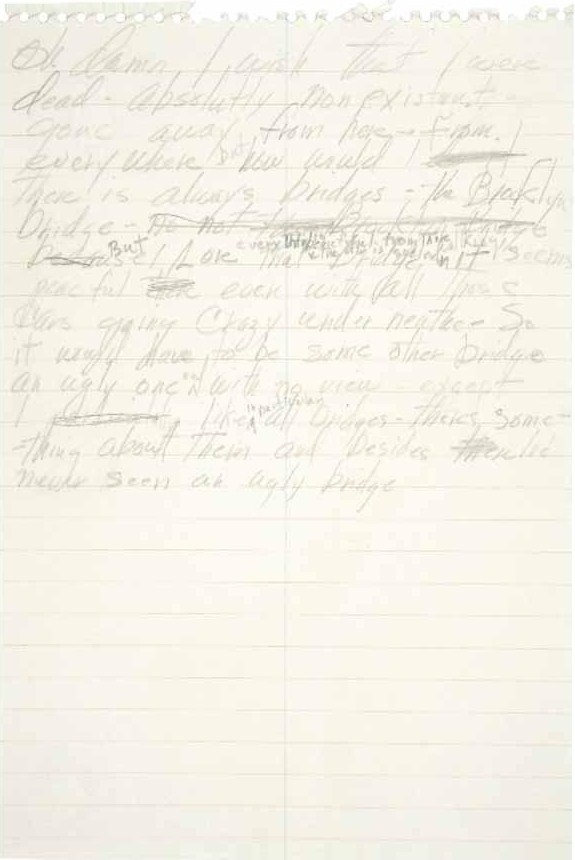 Oh damn I wish that I were
dead - absolutly nonexistent -
gone away from here - from
everywhere but how would I
There is always bridges - the Brooklyn
bridge - No not the Brooklyn Bridge
But I Love that bridge
everything is beautiful from there
and the air is so clean
it seems
peaceful even with all those
Cars going Crazy under neathe - So
it would have to be some other bridge
an ugly one and with no view - except
I like in particular all bridges - theres some-
-thing about them and besides I've
never seen an ugly bridge